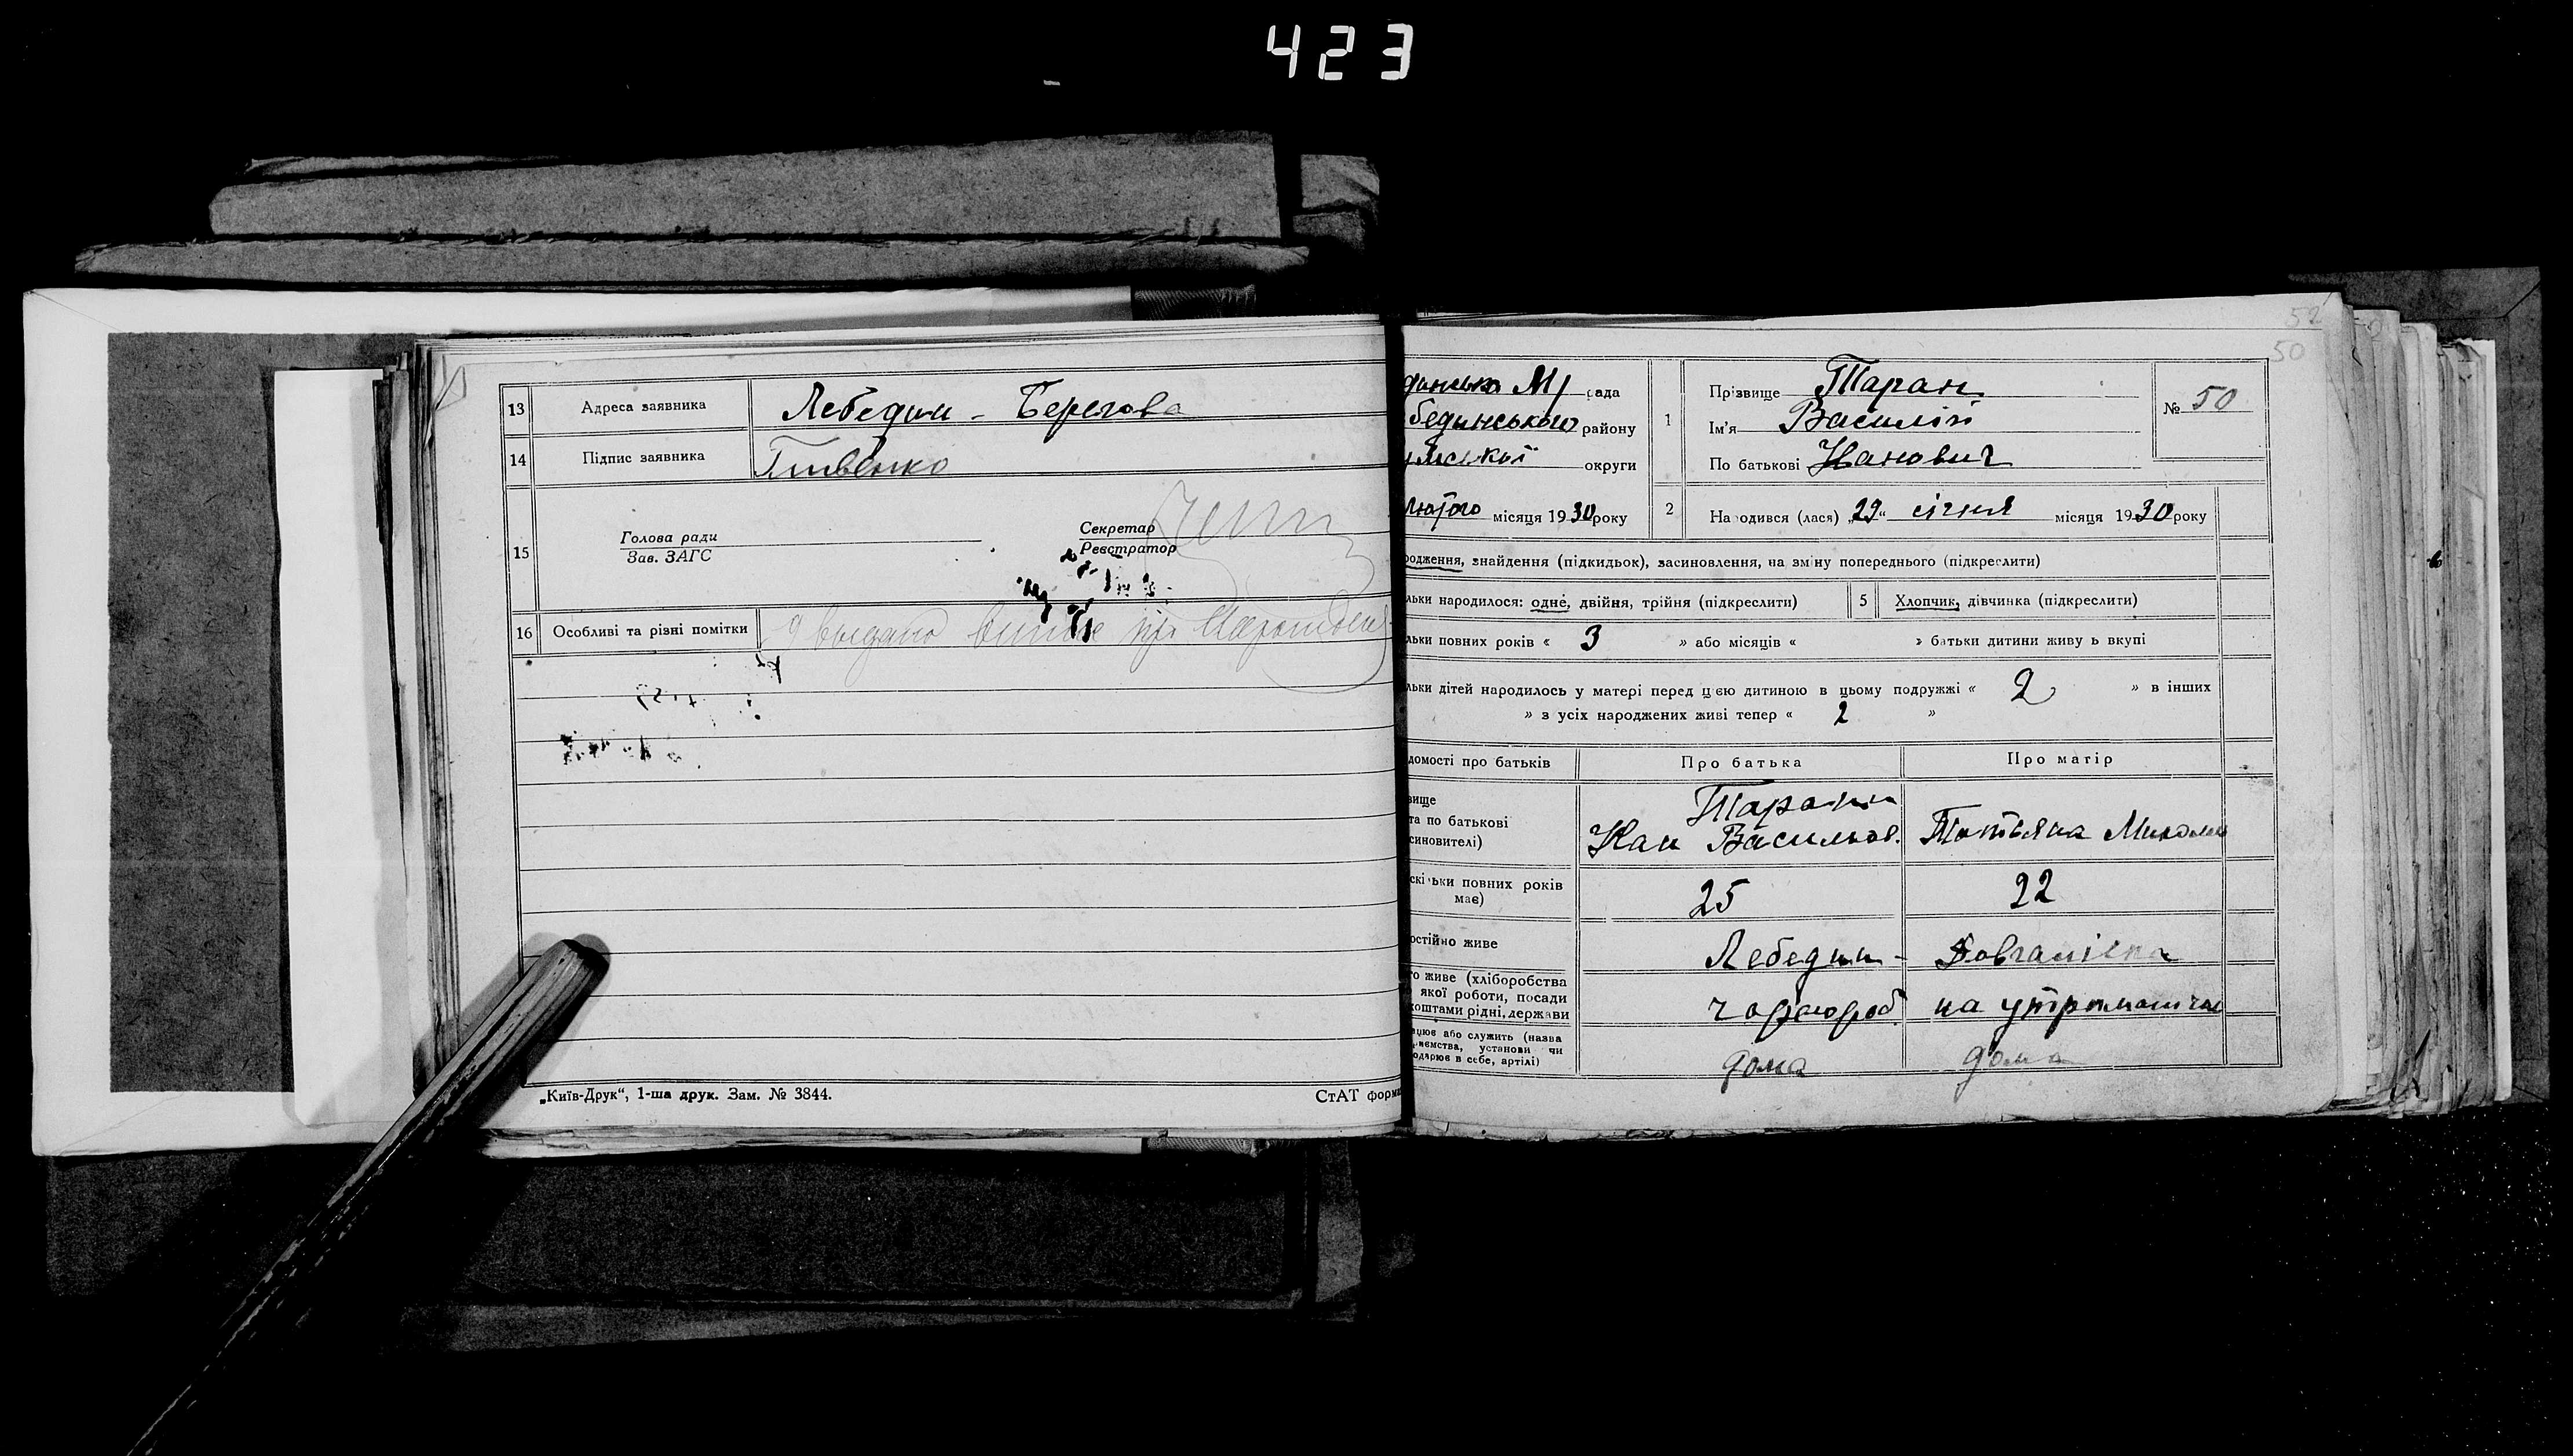 423
13 Адреса заявника Лебедин - Берегова
14 Підпис заявника
15 Голова ради
Зав. ЗАГС
Секретар
Реєстратор
16 Особливі та різні помітки
„Київ-Друк“, 1-ша друк. Зам. № 3844.
СтАТ форма
52
50
динська М/ рада
бединського району
умської округи
1 Прізвище Таран
Ім'я Василій
По батькові Иванович
№ 50
Лютого місяця 1930 року
2 Народився (лася) „29“ січня місяця 1930 року
родження, знайдення (підкидьок), засиновлення, на зміну попереднього (підкреслити)
льки народилося: одне, двійня, трійня (підкреслити)
5 Хлопчик, дівчинка (підкреслити)
льки повних років « 3 » або місяців « » батьки дитини живуть вкупі
льки дітей народилось у матері перед цією дитиною в цьому подружжі « 2 » в інших
» з усіх народжених живі тепер « 2 »
домості про батьків
Про батька
Про матір
вище
та по батькові
синовителі)
Таран
Иван Васильов.
Татьяна Микола
скільки повних років
має)
25
22
остійно живе
Лебедин - Довгалівка
го живе (хліборобства
якої роботи, посади
коштами рідні, держави
чорнороб
на утриманні
ацює або служить (назва
приємства, установи чи
одарює в себе, артілі)
дома
дома